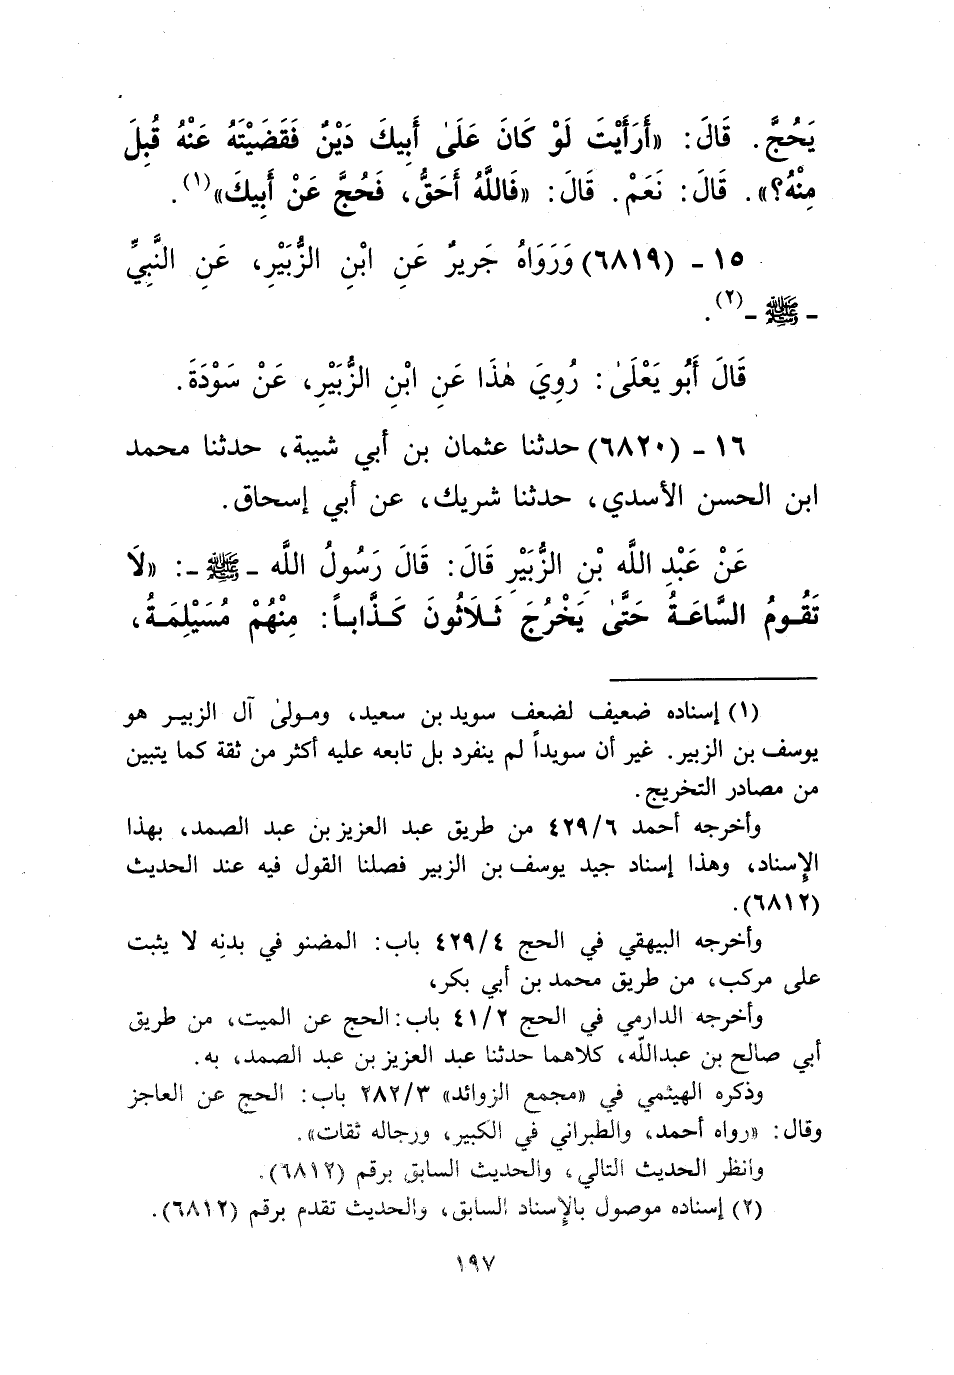 يَحُجَّ. قَالَ: «أَرَأَيْتَ لَوْ كَانَ عَلَىٰ أَبِيكَ دَيْنٌ فَقَضَيْتَهُ عَنْهُ قُبِلَ
مِنْهُ؟». قَالَ: نَعَمْ. قَالَ: «فَاللَّهُ أَحَقُّ، فَحُجَّ عَنْ أَبِيكَ»(١).
١٥ - (٦٨١٩) وَرَوَاهُ جَرِيرٌ عَنِ ابْنِ الزُّبَيْرِ، عَنِ النَّبِيِّ
- ﷺ -(٢).
قَالَ أَبُو يَعْلَىٰ: رُوِيَ هٰذَا عَنِ ابْنِ الزُّبَيْرِ، عَنْ سَوْدَةَ.
١٦ - (٦٨٢٠) حدثنا عثمان بن أبي شيبة، حدثنا محمد
ابن الحسن الأسدي، حدثنا شريك، عن أبي إسحاق.
عَنْ عَبْدِ اللَّه بْنِ الزُّبَيْرِ قَالَ: قَالَ رَسُولُ اللَّه - ﷺ -: «لَا
تَقُومُ السَّاعَةُ حَتَّىٰ يَخْرُجَ ثَلَاثُونَ كَذَّاباً: مِنْهُمْ مُسَيْلِمَةُ،
(١) إسناده ضعيف لضعف سويد بن سعيد، ومولىٰ آل الزبير هو
يوسف بن الزبير. غير أن سويداً لم ينفرد بل تابعه عليه أكثر من ثقة كما يتبين
من مصادر التخريج.
وأخرجه أحمد ٤٢٩/٦ من طريق عبد العزيز بن عبد الصمد، بهذا
الإسناد، وهذا إسناد جيد يوسف بن الزبير فصلنا القول فيه عند الحديث
(٦٨١٢).
وأخرجه البيهقي في الحج ٤٢٩/٤ باب: المضنو في بدنه لا يثبت
على مركب، من طريق محمد بن أبي بكر،
وأخرجه الدارمي في الحج ٤١/٢ باب: الحج عن الميت، من طريق
أبي صالح بن عبدالله، كلاهما حدثنا عبد العزيز بن عبد الصمد، به.
وذكره الهيثمي في «مجمع الزوائد» ٢٨٢/٣ باب: الحج عن العاجز
وقال: «رواه أحمد، والطبراني في الكبير، ورجاله ثقات».
وانظر الحديث التالي، والحديث السابق برقم (٦٨١٢).
(٢) إسناده موصول بالإسناد السابق، والحديث تقدم برقم (٦٨١٢).
١٩٧